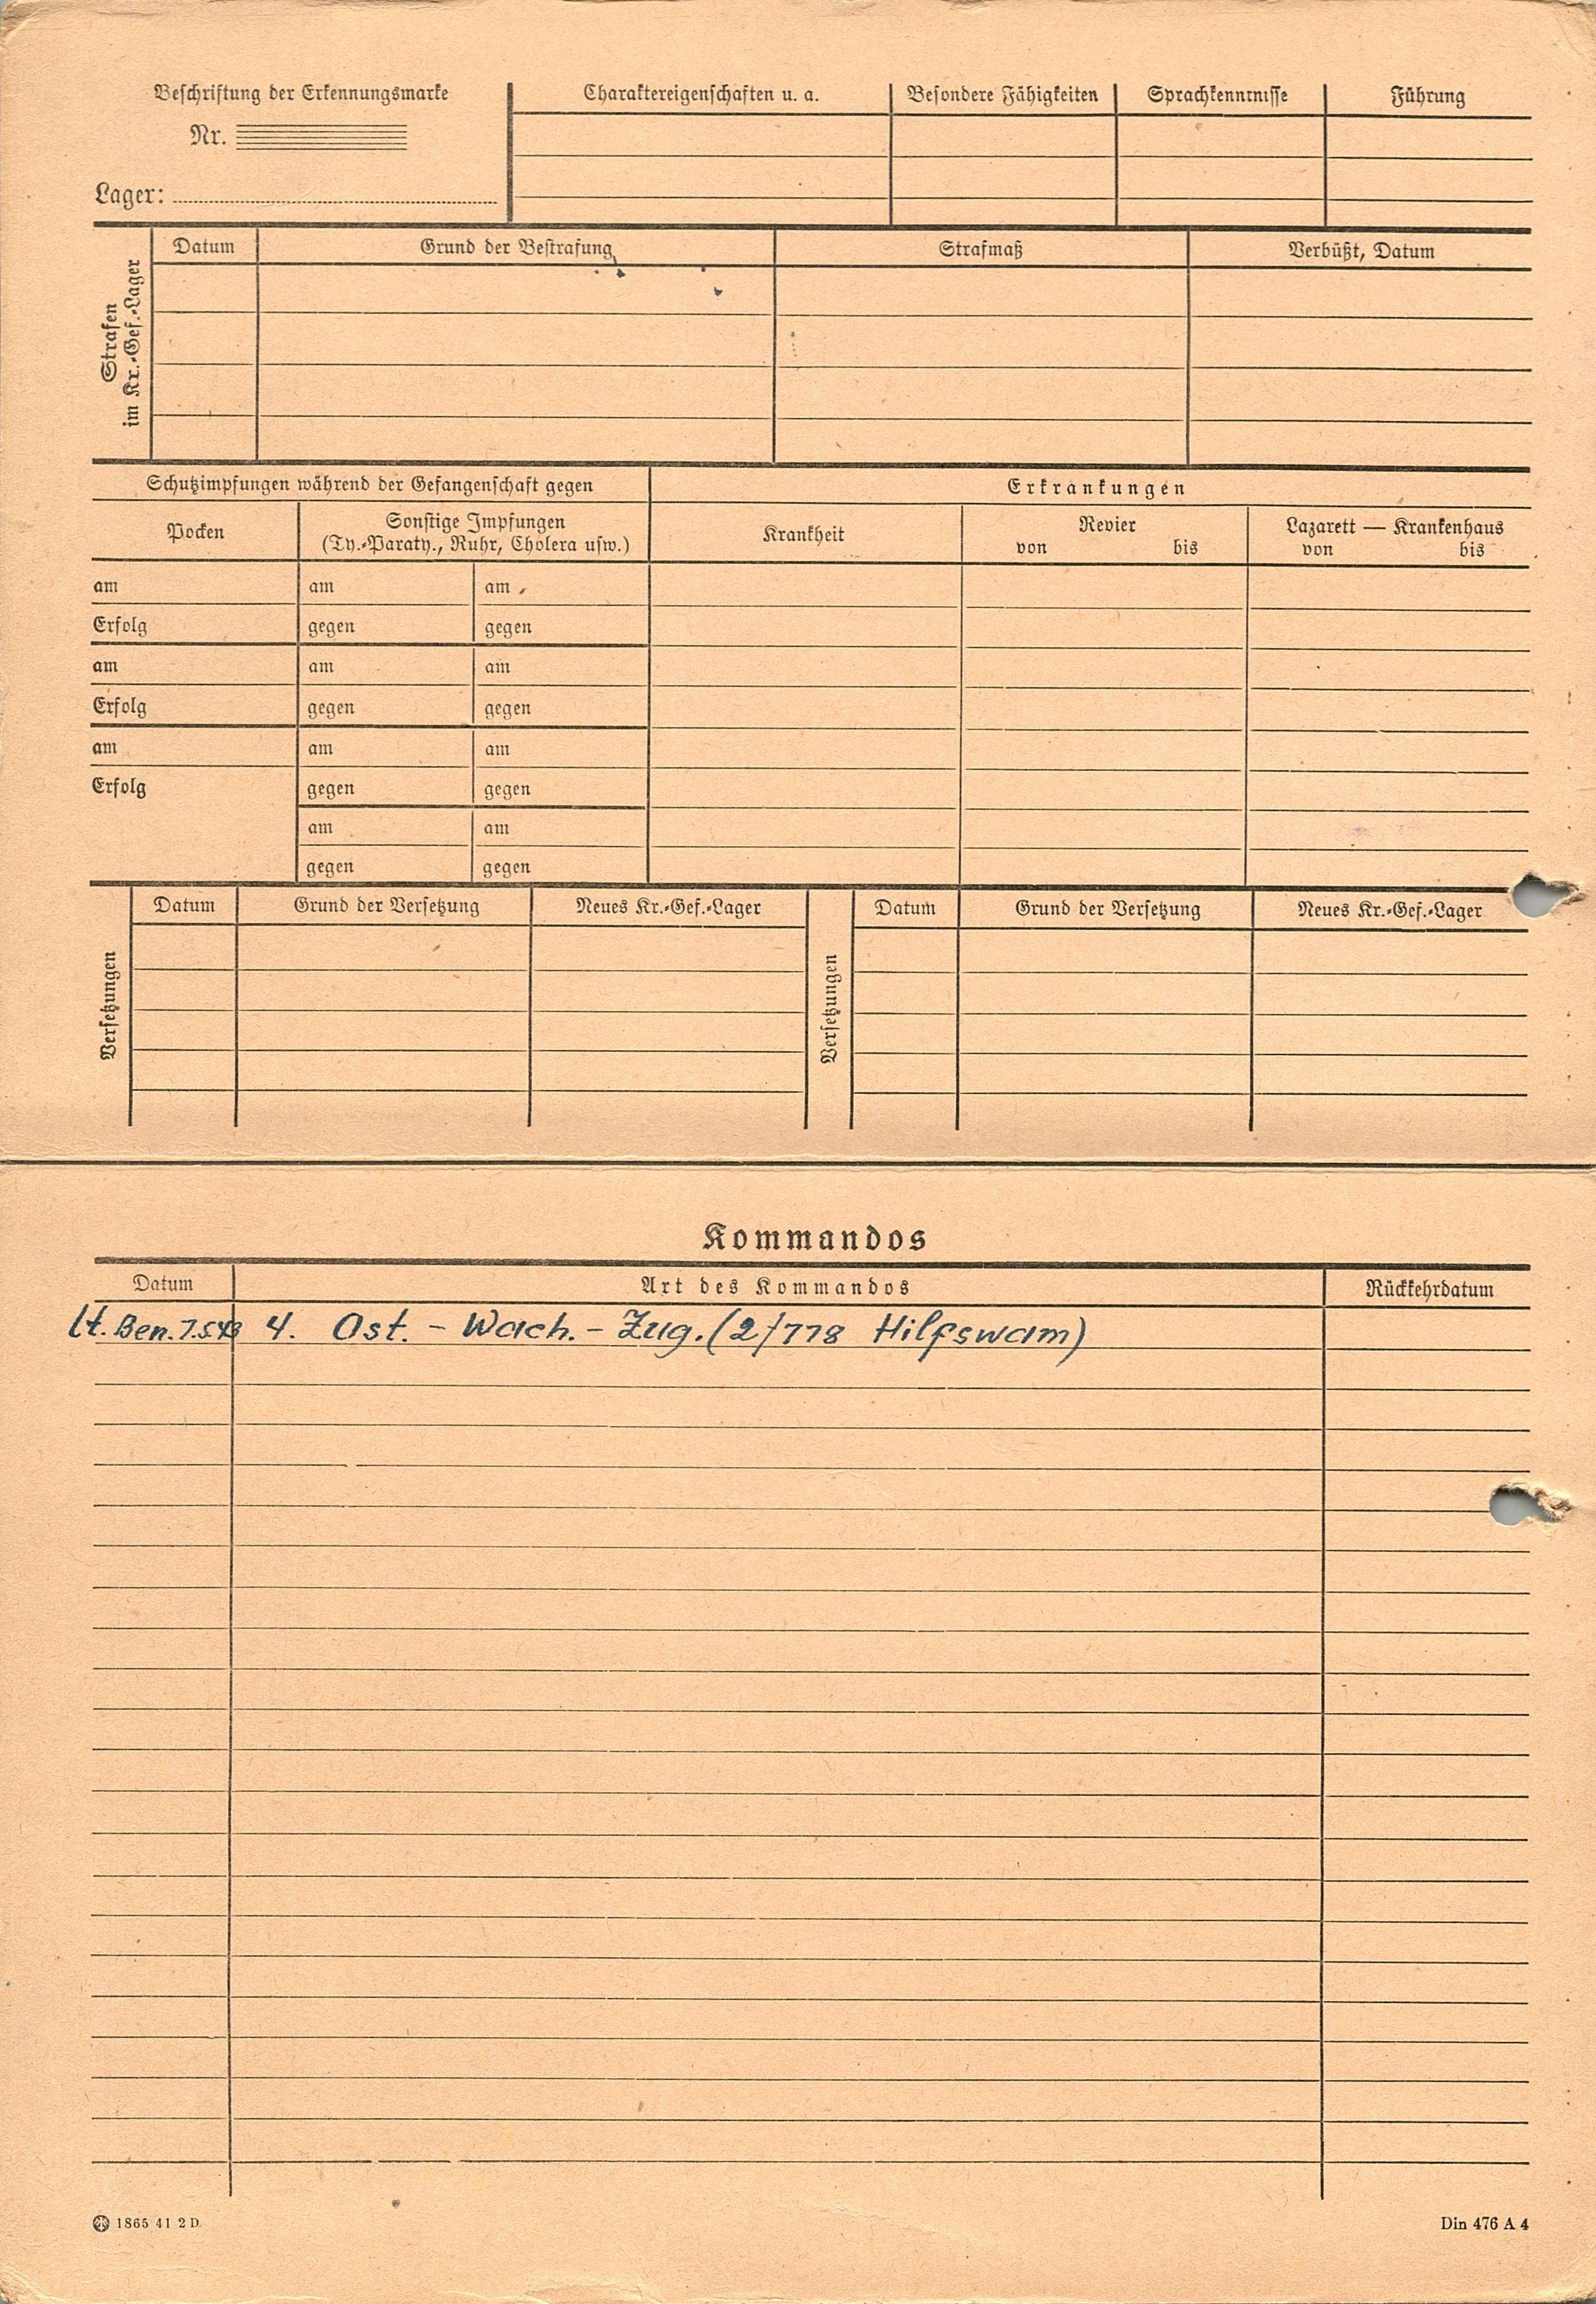 Beschriftung der Erkennungsmarke
Nr.
Lager:
Charaktereigenschaften u. a.
Besondere Fähigkeiten
Sprachkenntnisse
Führung
Strafen
im Kr.-Gef.-Lager
Datum
Grund der Bestrafung
Strafmaß
Verbüßt, Datum
Schutzimpfungen während der Gefangenschaft gegen
Erkrankungen
Pocken
Sonstige Impfungen
(Ty.-Paraty., Ruhr, Cholera usw.)
Krankheit
Revier
von bis
Lazarett — Krankenhaus
von bis
am am am
Erfolg gegen gegen
am am am
Erfolg gegen gegen
am am am
Erfolg gegen gegen
am am
gegen gegen
Versetzungen
Datum Grund der Versetzung Neues Kr.-Gef.-Lager
Versetzungen
Datum Grund der Versetzung Neues Kr.-Gef.-Lager
Kommandos
Datum Art des Kommandos Rückkehrdatum
lt. Ben. 7.5.43 4. Ost. - Wach. - Zug. (2/778 Hilfswam)
1865 41 2 D.
Din 476 A 4